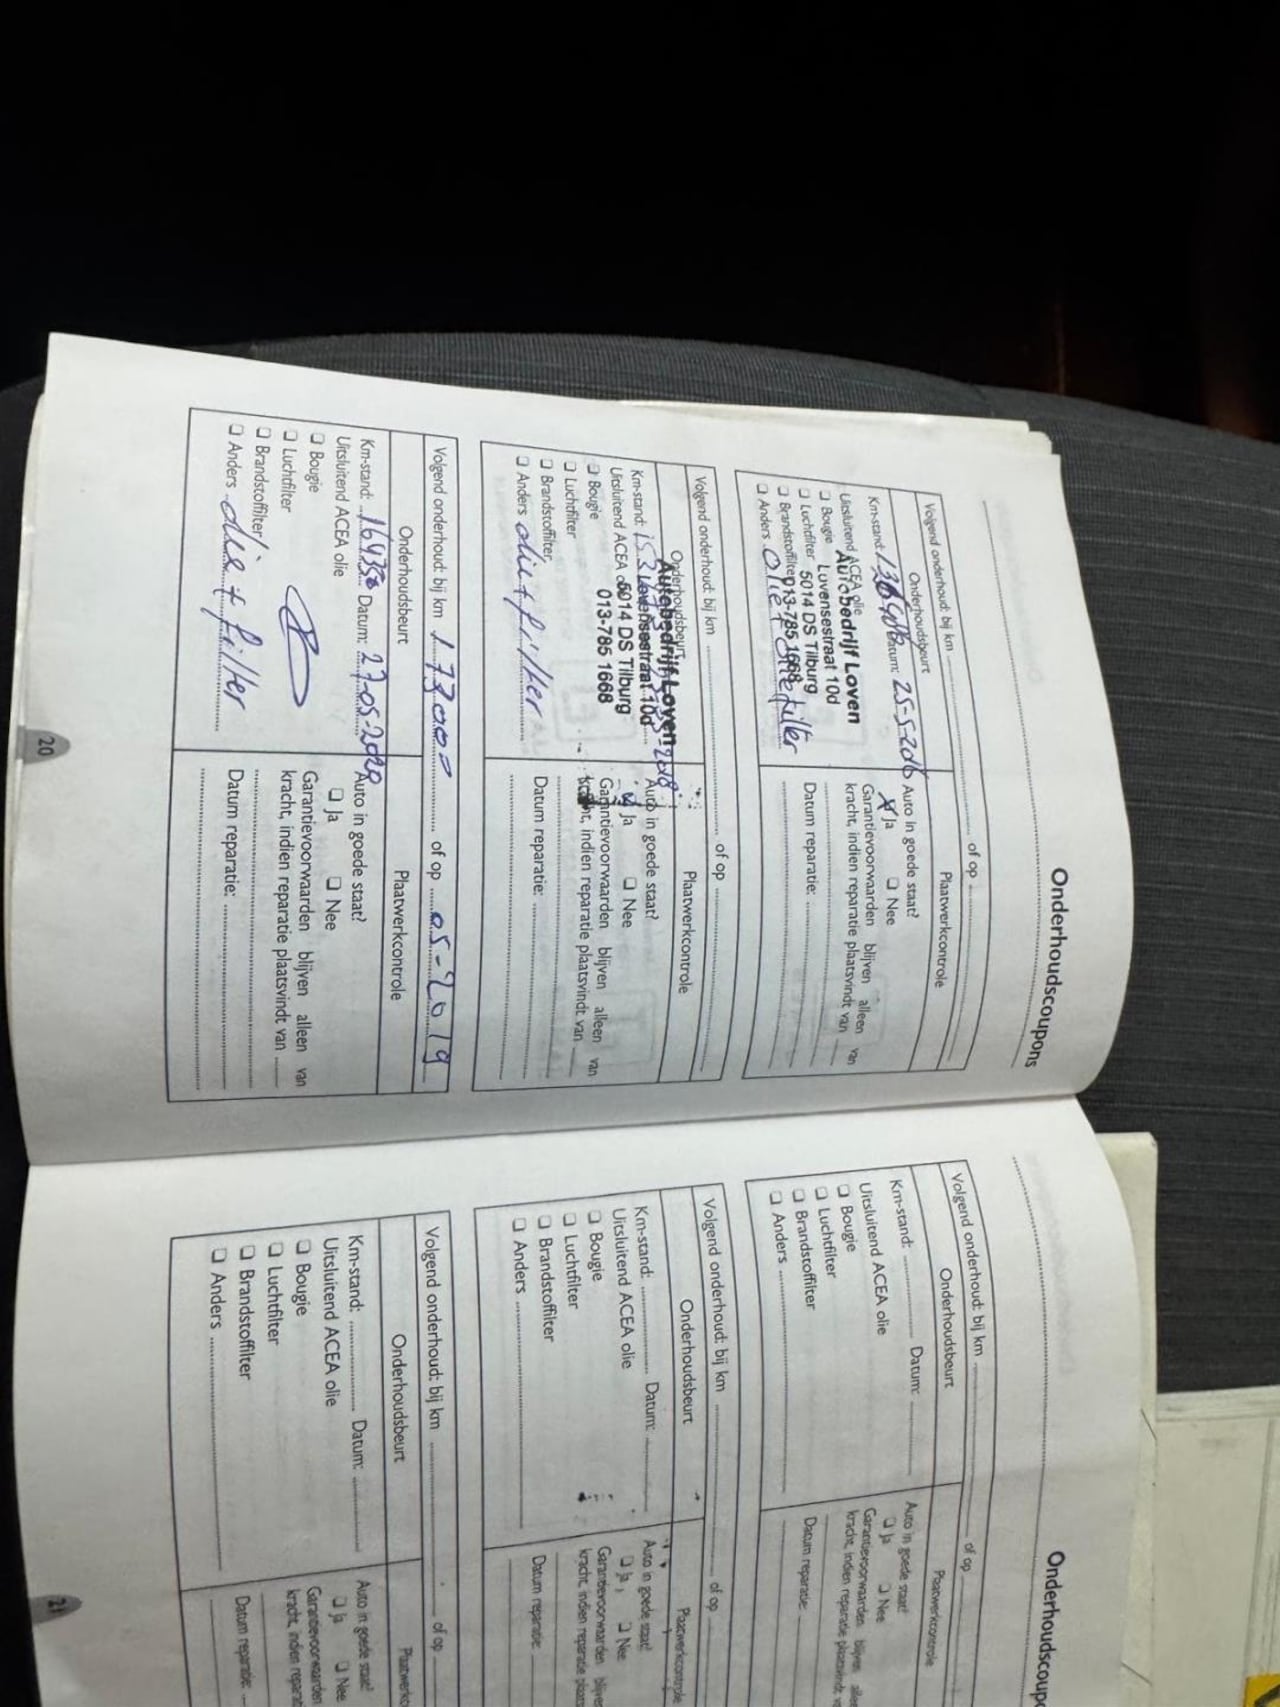 Onderhoudscoupons
Volgend onderhoud: bij km of op
Onderhoudsbeurt Plaatwerkcontrole
Km-stand: Datum: 25-5-2016 Auto in goede staat?
Uitsluitend ACEA olie X Ja Nee
Autobedrijf Loven
Bougie Garantievoorwaarden blijven alleen van
Lovensestraat 10d
Luchtfilter kracht, indien reparatie plaatsvindt van
5014 DS Tilburg
Brandstoffilter Datum reparatie:
013-785 1668
Anders olie + oliefilter
Volgend onderhoud: bij km of op
Onderhoudsbeurt Plaatwerkcontrole
Autobedrijf Loven
Km-stand: Auto in goede staat?
Lovensestraat 10d
Uitsluitend ACEA Ja Nee
5014 DS Tilburg
Bougie Garantievoorwaarden blijven alleen van
013-785 1668
Luchtfilter indien reparatie plaatsvindt van
Brandstoffilter Datum reparatie:
Anders olie + filter
Volgend onderhoud: bij km 173000 of op 05-2019
Onderhoudsbeurt Plaatwerkcontrole
Km-stand: Datum: Auto in goede staat?
Uitsluitend ACEA olie Ja Nee
Bougie Garantievoorwaarden blijven alleen van
Luchtfilter kracht, indien reparatie plaatsvindt van
Brandstoffilter Datum reparatie:
Anders olie + filter
20
Onderhoudscoupo
Volgend onderhoud: bij km of op
Onderhoudsbeurt Plaatwerkcontrole
Km-stand: Datum: Auto in goede staat?
Uitsluitend ACEA olie Ja Nee
Bougie Garantievoorwaarden blijven
Luchtfilter kracht, indien reparatie
Brandstoffilter Datum reparatie:
Anders
Volgend onderhoud: bij km of op
Onderhoudsbeurt Plaatwerkcontrole
Km-stand: Datum: Auto in goede staat?
Uitsluitend ACEA olie Ja Nee
Bougie Garantievoorwaarden
Luchtfilter kracht, indien reparatie
Brandstoffilter Datum reparatie:
Anders
Volgend onderhoud: bij km of op
Onderhoudsbeurt
Km-stand: Datum: Auto in goede staat?
Uitsluitend ACEA olie Ja Nee
Bougie Garantievoorwaarden
Luchtfilter kracht, indien
Brandstoffilter Datum reparatie:
Anders
21